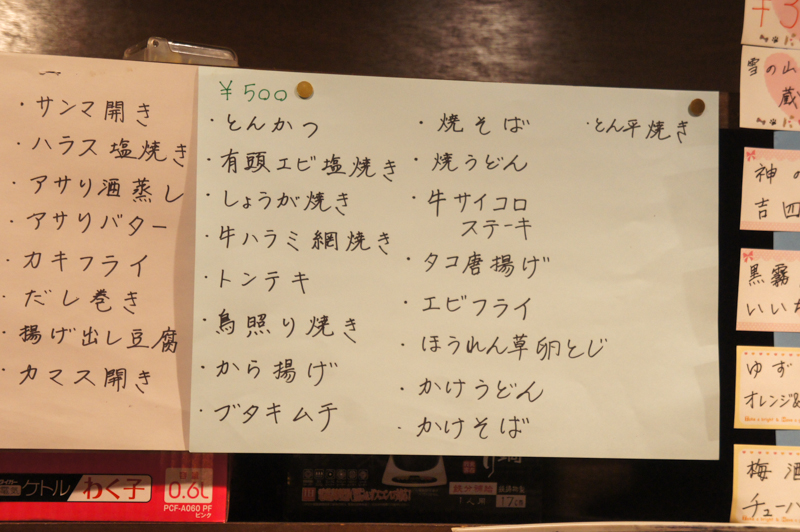 ・サンマ開き
・ハラス塩焼き
・アサリ酒蒸し
・アサリバター
・カキフライ
・だし巻き
・揚げ出し豆腐
・カマス開き
¥500
・とんかつ
・有頭エビ塩焼き
・しょうが焼き
・牛ハラミ網焼き
・トンテキ
・鳥照り焼き
・から揚げ
・ブタキムチ
・焼そば
・焼うどん
・牛サイコロ
ステーキ
・タコ唐揚げ
・エビフライ
・ほうれん草卵とじ
・かけうどん
・かけそば
・とん平焼き
雪の山
蔵
神の
吉四
黒霧
いいち
ゆず
オレンジ&
梅酒
チューハ
ケトル わく子
0.6L
PCF-A060 PF
ピンク